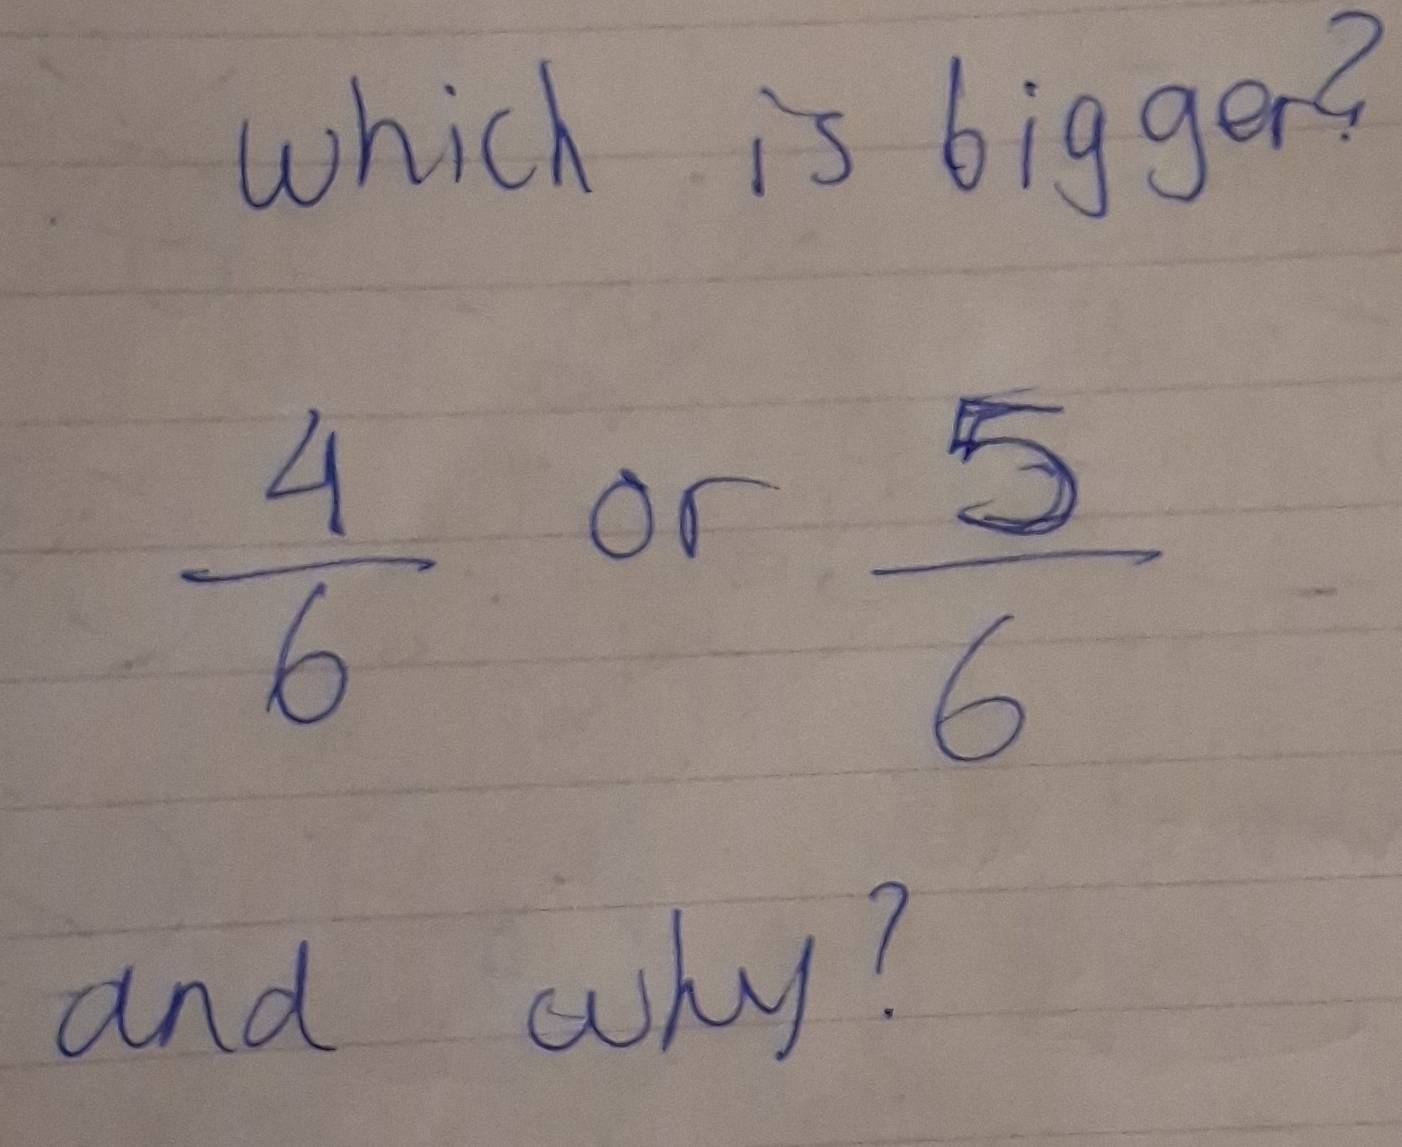 which is bigger?
4/6 or 5/6
and why?